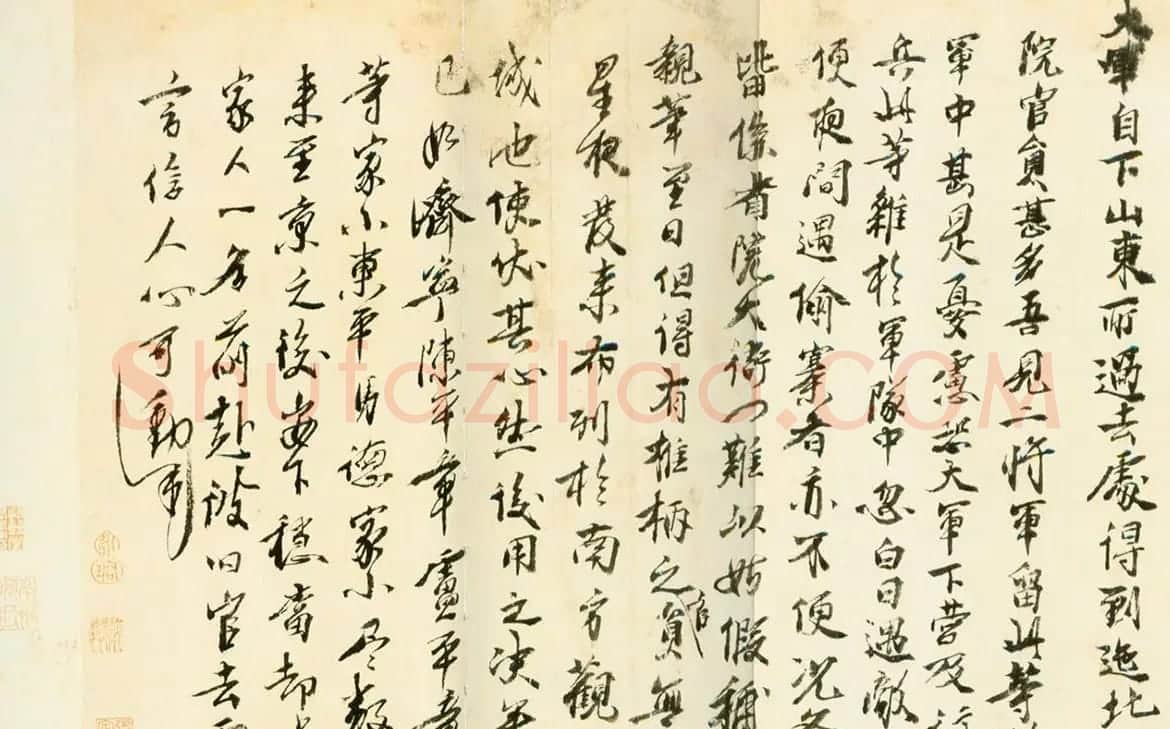 大軍自下山東所過去處得到迤北
院官員甚多吾見二將軍留此等
軍中甚是憂慮恐大軍下營及行
兵此等雜於軍隊中忽白日遇敵
便夜間遇偷寨者亦不便況各
皆係省院大衙門難以姑假補
親筆至日但得有椎柄之官員無
星夜發來布列於南方觀
城池使伏其心然後用之決無
已如濟寧陳平章盧平章
等家小東平馬德家小尽數
來至京之後安下穩當却
家人一名前赴彼旧官去
言信人心可動
Shufaziliao.COM